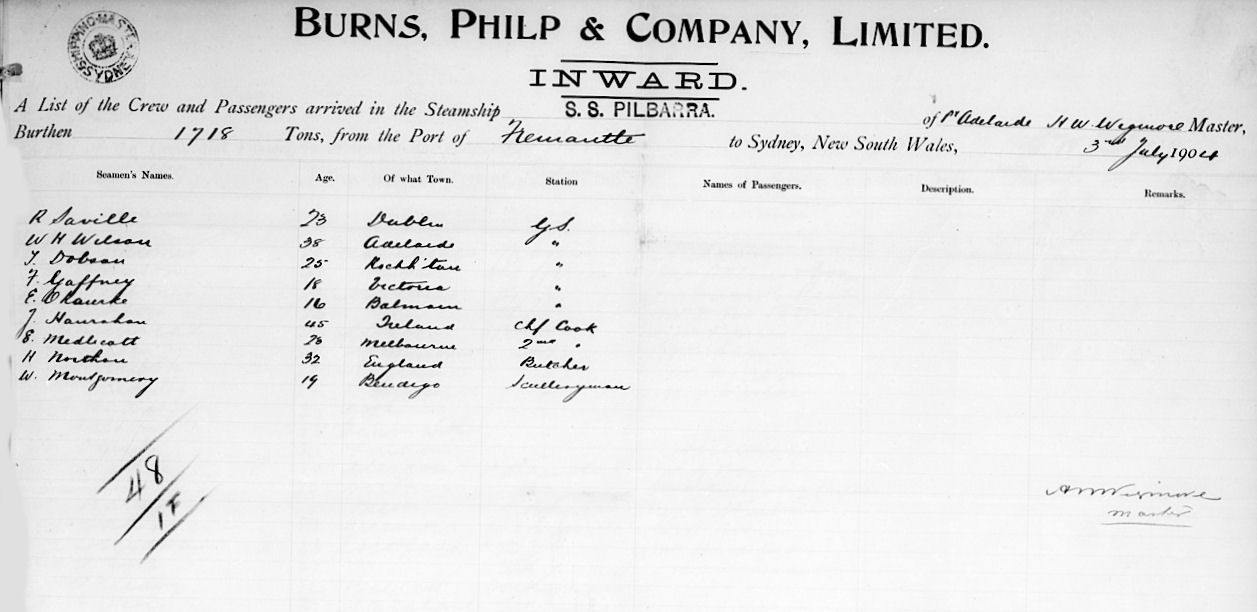 BURNS, PHILP & COMPANY, LIMITED.
SHIPPING MASTE SYDNEY
INWARD.
A List of the Crew and Passengers arrived in the Steamship S. S. PILBARRA. of Pt Adelaide H W Wigmore Master,
Burthen 1718 Tons, from the Port of Fremantle to Sydney, New South Wales, 3rd July 1904
Seamen's Names. Age. Of what Town. Station Names of Passengers. Description. Remarks.
R Saville 23 Dublin G.S.
W H Wilson 38 Adelaide "
T. Dobson 25 Rockh'ton "
F. Gaffney 18 Victoria "
E. O'Rourke 16 Balmain "
J. Hanrahan 45 Ireland Chf Cook
E. Medlicott 26 Melbourne 2nd "
H Northon 32 England Butcher
W. Montgomery 19 Bendigo Sculleryman
48
1 F
HWWigmore
Master